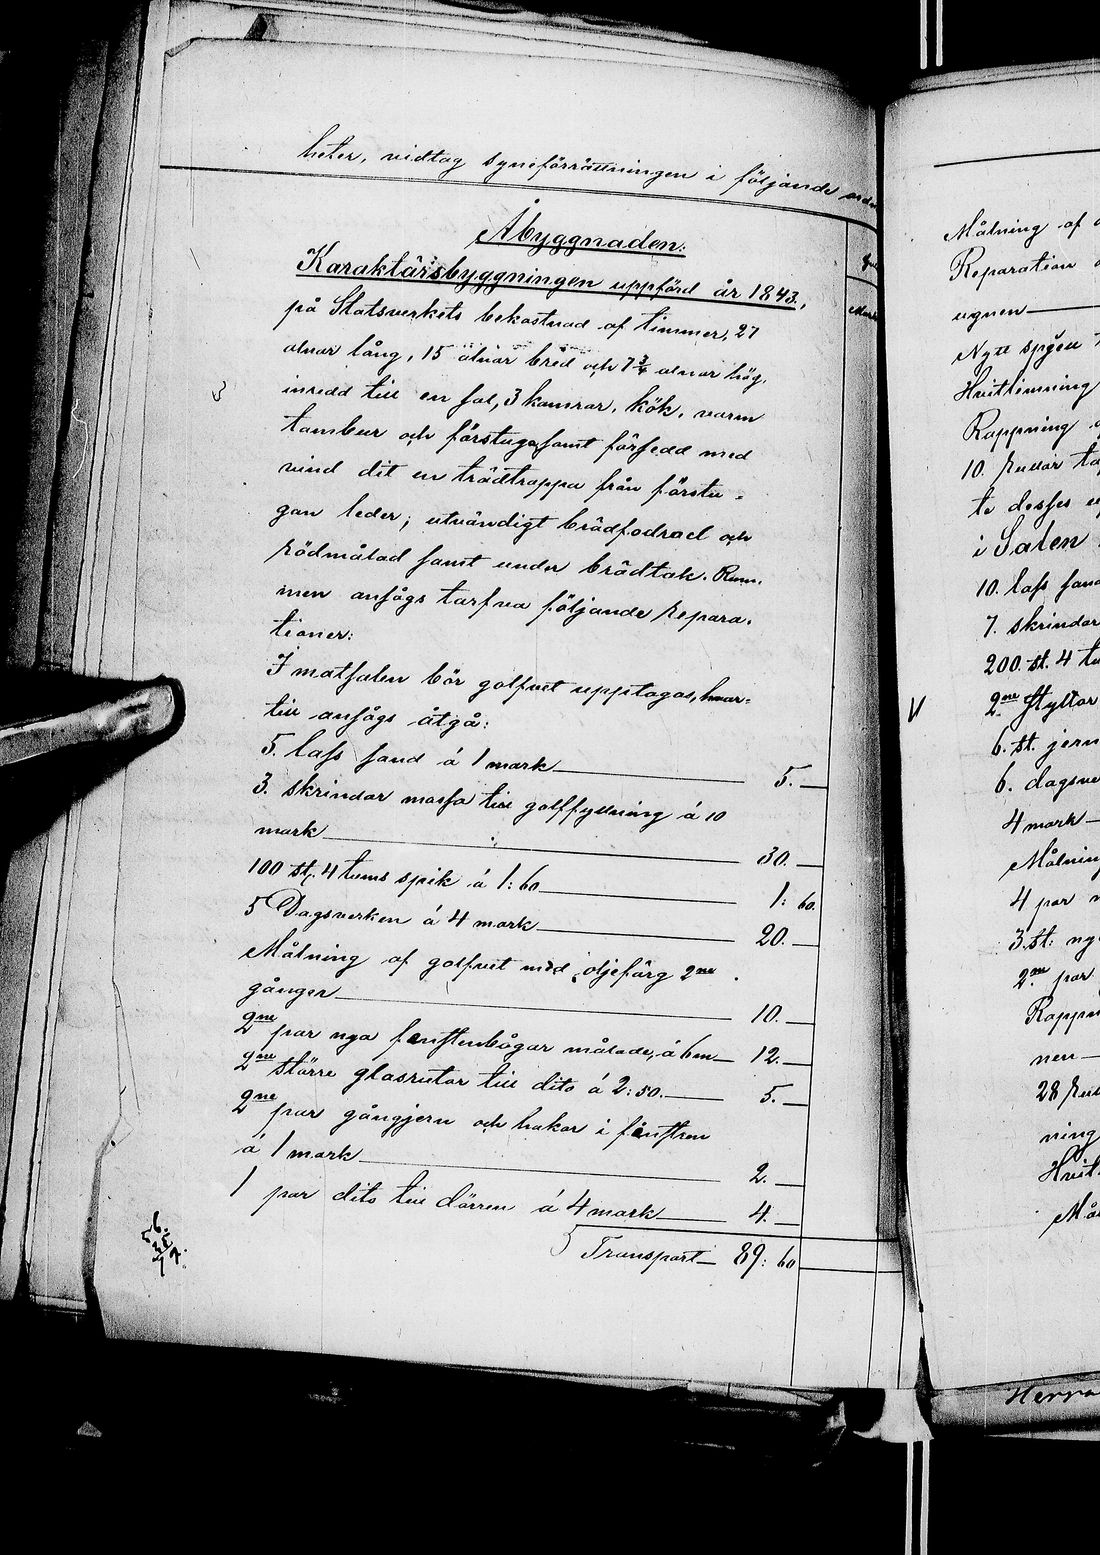 heter, vidtog syneförrättningen i följande
Åbyggnaden:
Karaktärsbyggningen uppförd år 1843,
på Statsverkets bekostnad af timmer, 27
alnar lång, 15 alnar bred och 7 3/4 alnar hög,
inredd till en sal, 3 kamrar, kök, varm
tambur och förstuga, samt försedd med
vind dit en trädtrappa från förstu-
gan leder; utvändigt brädfodrad och
rödmålad samt under brädtak. Rum-
men ansågs tarfva följande repara-
tioner:
I matsalen bör golfvet upptagas, hvar-
till ansågs åtgå:
5. lass sand á 1 mark 5.—
3. skrindor mossa till golffyllning á 10
mark 30.—
100 st. 4 tums spik á 1:60 1: 60.
5 Dagsverken á 4 mark 20.—
Målning af golfvet med oljefärg 2ne
gånger 10.—
2ne par nya fenstenbågar målade, á 6 m 12.—
2ne större glasrutor till dito á 2:50. 5.—
2ne par gångjern och hakar i fönstren
á 1 mark 2.—
1 par dito till dörren á 4 mark 4.—
Transport 89: 60
Målning af
Reparation
ugnen
Nytt spjell
Hvitlimning
Rappning
10. rutor
te desses
i Salen
10. lass
7. skrindor
200. st. 4
2ne
6. st. jern
6.
4 mark
Målning
4 par
3. st: ny
2ne par
Rappn
nen
28
ning
Hvit
Mål